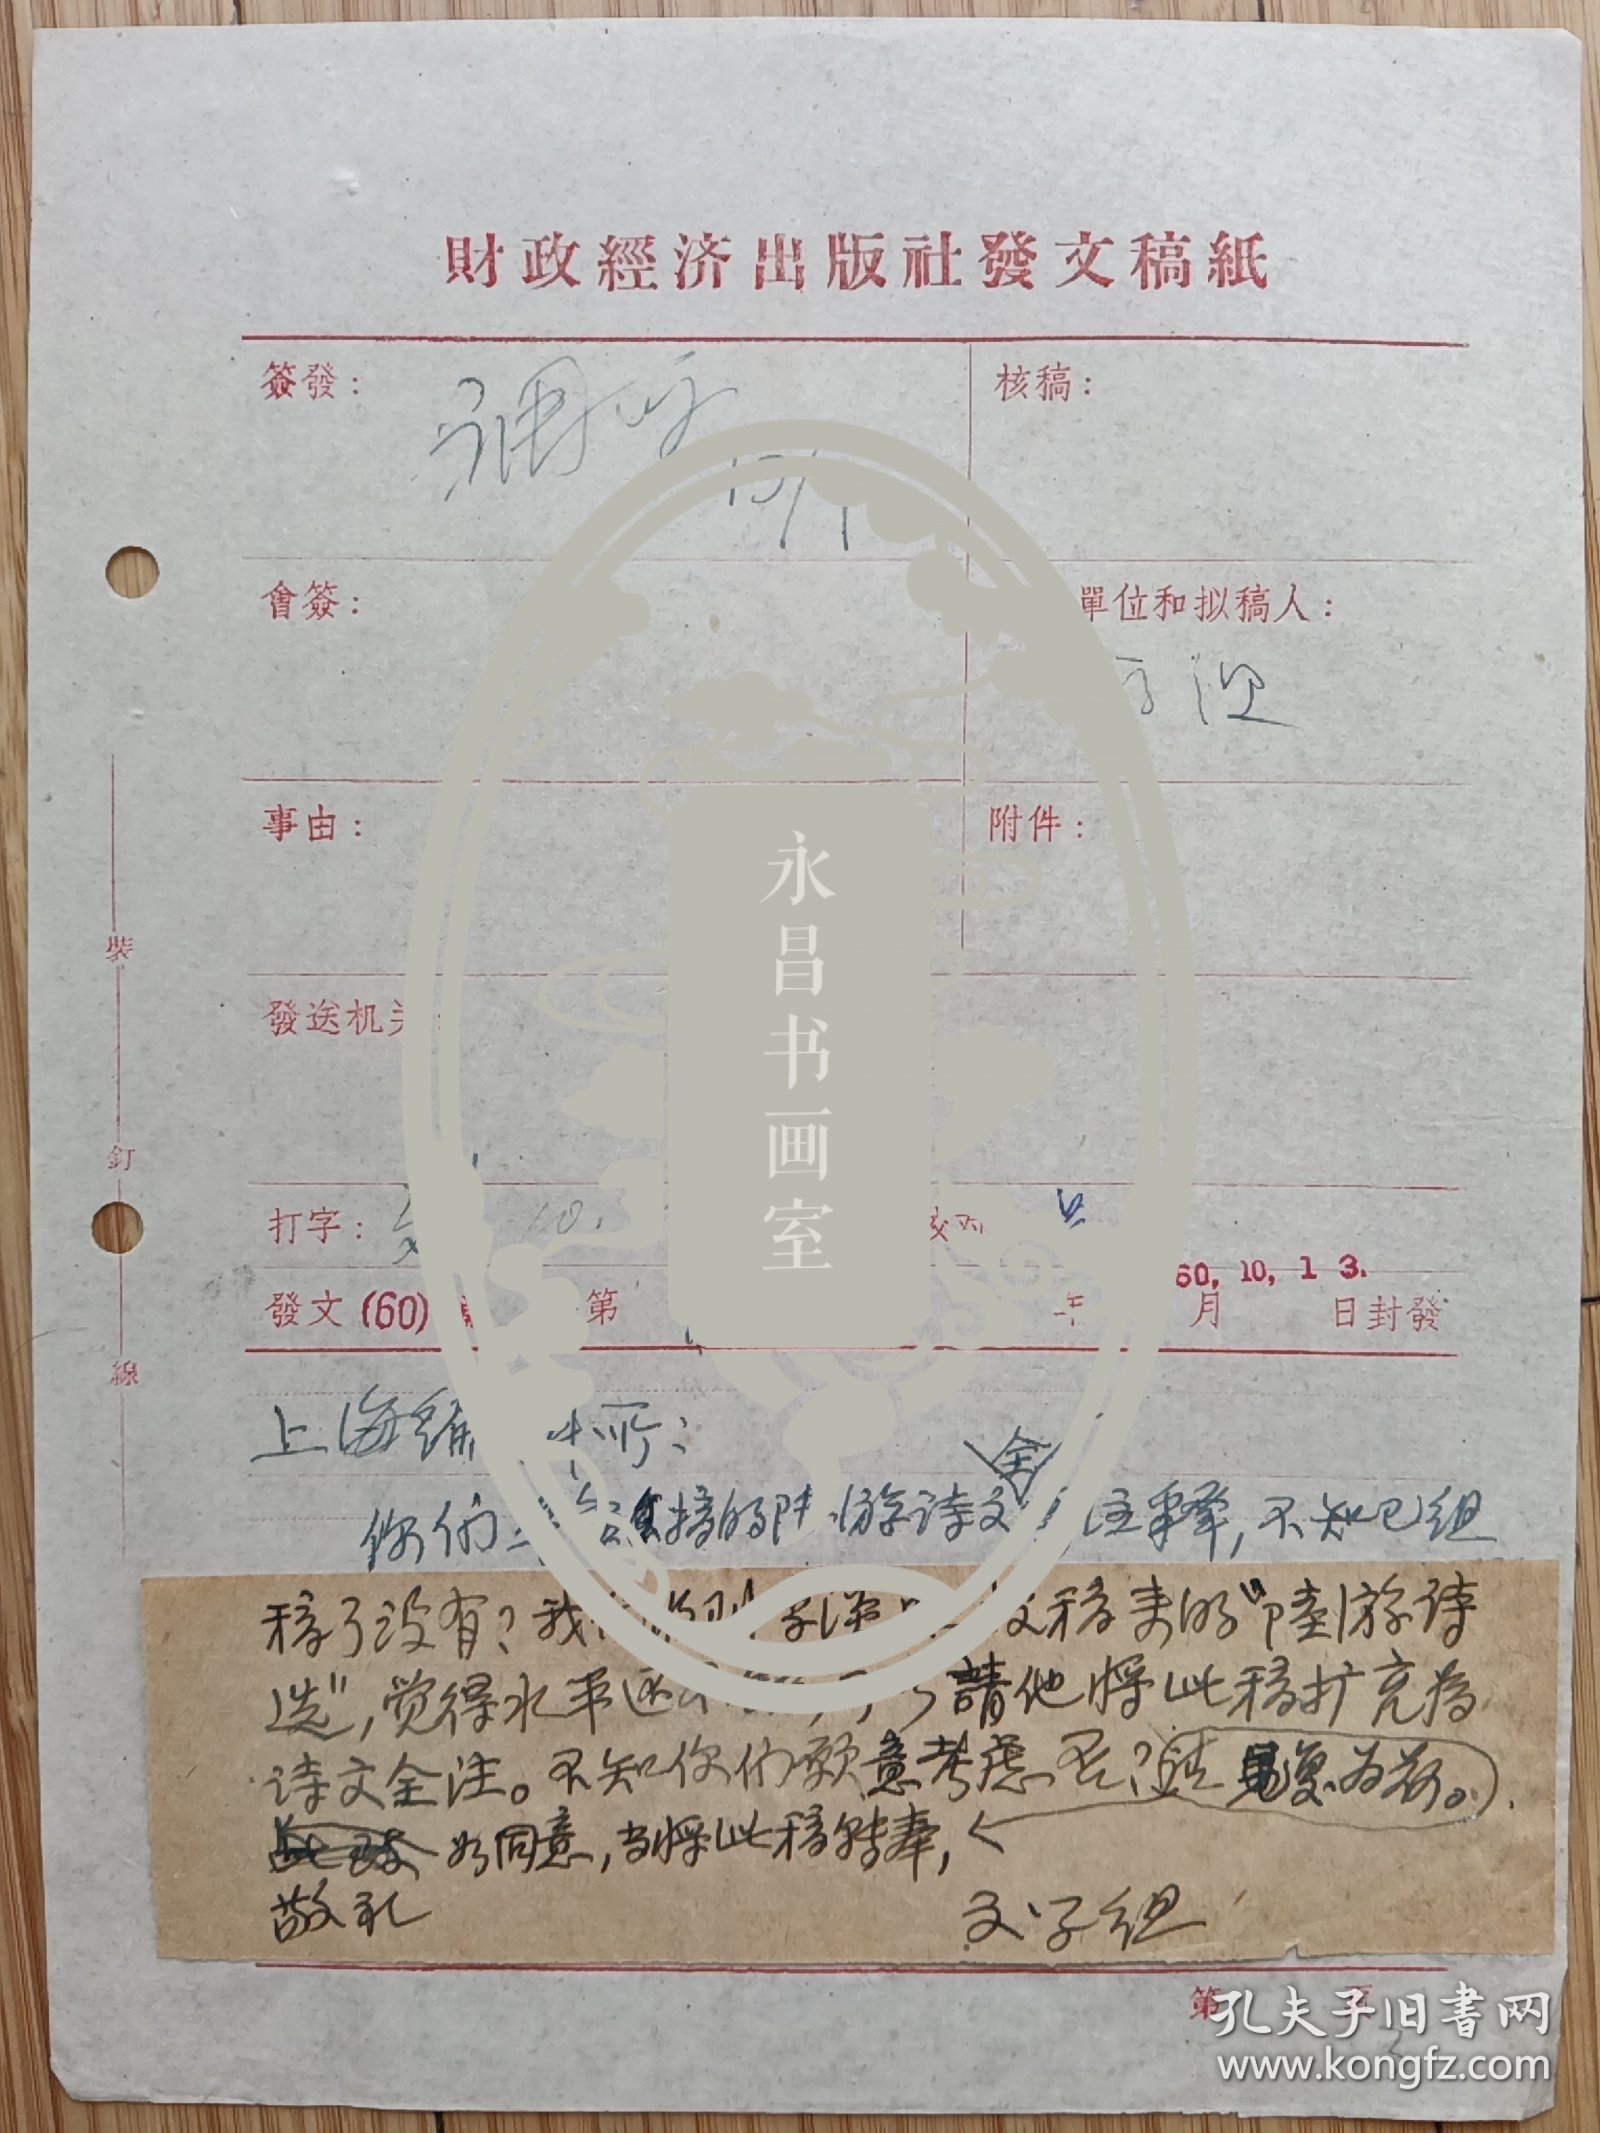 財政經济出版社發文稿紙
簽發：
核稿：
會簽：
單位和拟稿人：
事由：
附件：
發送机关
打字：
發文(60)
第
年
月
日封發
60, 10, 1 3.
裝
訂
線
上海编 所：
你们 的陆游诗文全 注釋，不知已组
稿了没有？我 稿来的“陸游诗
选”，觉得水平还 請他将此稿扩充为
诗文全注。不知你们願意考虑否？请見复为荷。
如同意，当将此稿转奉，
敬礼
文学组
第
永昌书画室
孔夫子旧书网
www.kongfz.com